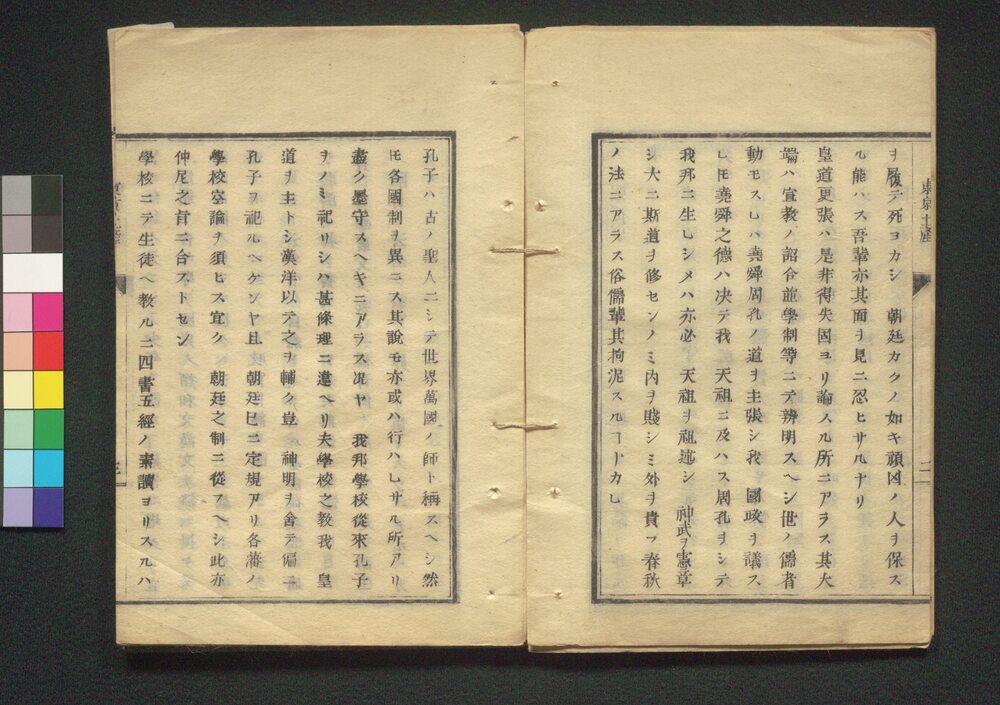 ヲ履テ死ヨカシ　朝廷カクノ如キ頑凶ノ人ヲ保ス
ル能ハス吾輩亦其面ヲ見ニ忍ヒサルナリ
皇道更張ハ是非得失固ヨリ論スル所ニアラス其大
端ハ宣教ノ詔令並學制等ニテ辨明スヘシ世ノ儒者
動モスレハ堯舜周孔ノ道ヲ主張シ我　國政ヲ議ス
レモ堯舜之德ハ决テ我　天祖ニ及ハス周孔ヲシテ
我邦ニ生レシメハ亦必　天祖ヲ祖述シ　神武ヲ憲章
シ大ニ斯道ヲ修センノミ内ヲ賤シミ外ヲ貴フ春秋
ノ法ニアラス俗儒輩其拘泥スルヿナカレ
二
孔子ハ古ノ聖人ニシテ世界萬國ノ師ト稱スヘシ然
モ各國制ヲ異ニス其說モ亦或ハ行ハレサル所アリ
盡ク墨守スヘキニアラス况ヤ　我邦學校從來孔子
ヲノミ祀リシハ甚條理ニ違ヘリ夫學校之敎我　皇
道ヲ主トシ漢洋以テ之ヲ輔ク豈　神明ヲ舍テ偏ニ
孔子ヲ祀ルヘケンヤ且　朝廷已ニ定規アリ各藩ノ
學校空論ヲ須ヒス宜ク　朝廷之制ニ從フヘシ此亦
仲尼之旨ニ合ストセン
學校ニテ生徒ヘ教ルニ四書五經ノ素讀ヨリスルハ
三